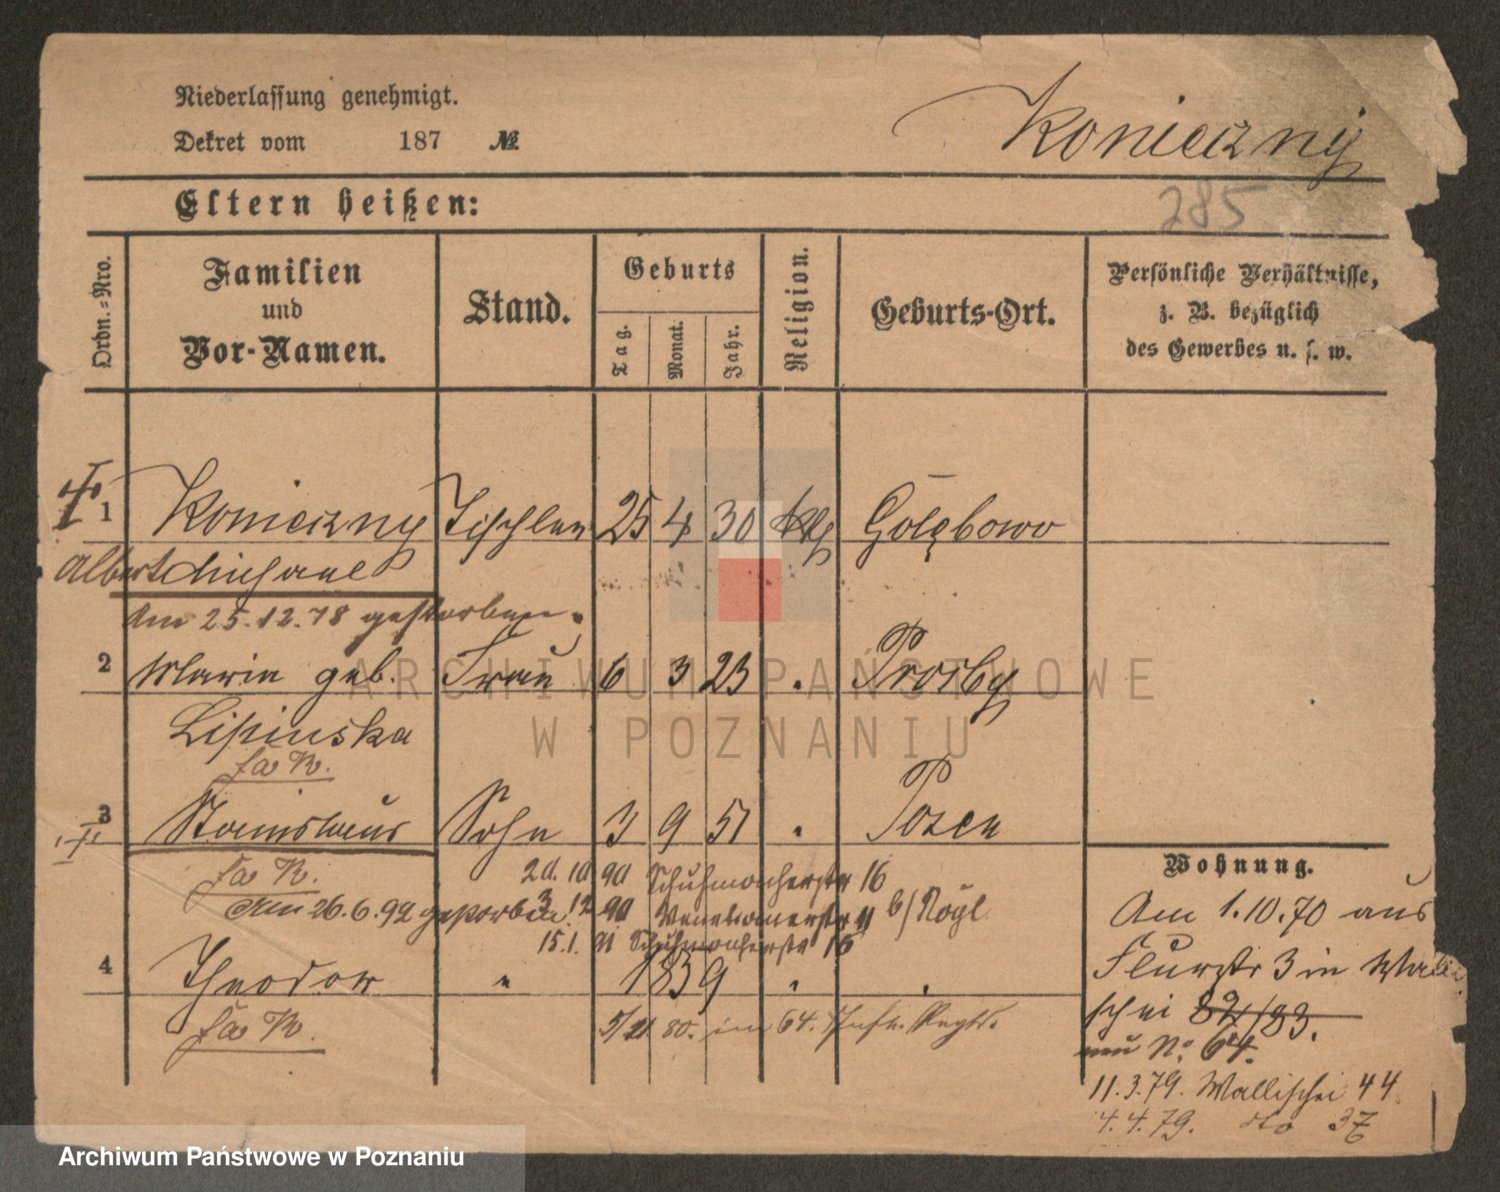 Niederlassung genehmigt.
Dekret vom 187 №
Konieczny
Eltern heißen:
285
Ordn.=Nro.
Familien
und
Vor-Namen.
Stand.
Geburts
Tag.
Monat.
Jahr.
Religion.
Geburts-Ort.
Persönliche Verhältnisse,
z. B. bezüglich
des Gewerbes u. s. w.
1 Konieczny Tischler 25 4 30 kth Golębowo
Albert
Am 25.12.78 gestorben.
2 Maria geb. Frau 6 3 23 " Prosby
Lipinska
fa R.
3 Stanislaus Sohn 3 9 51 " Posen
fa R.
20. 10 90 Schuhmacherstr 16
Am 26.6.92 gestorben.
3. 12 90 Venetianerstr 11 b/ Nögl
15.1. 91 Schuhmacherstr 16
4 Theodor " 1859 " "
fa R.
5/11 80. im 64. Infr. Regt.
Wohnung.
Am 1.10.70 aus
Flurstr 3 in Walli
schei 82/83.
neu No. 64.
11.3.79. Wallischei 44
4.4.79. dto 37
ARCHIWUM PAŃSTWOWE
W POZNANIU
Archiwum Państwowe w Poznaniu